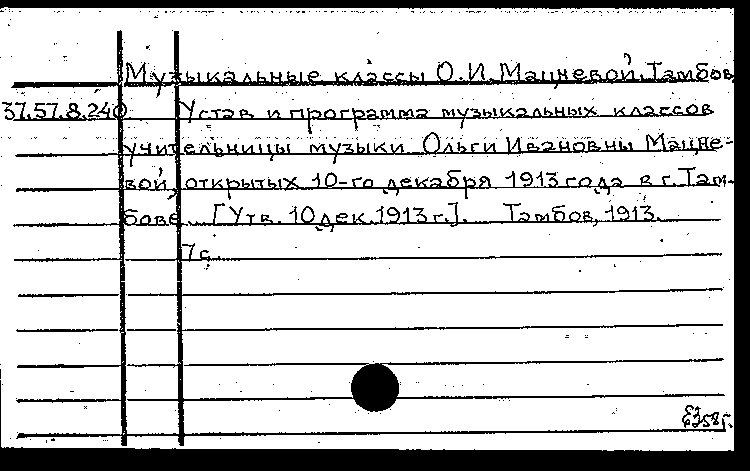 Музыкальные классы О.И. Мацневой. Тамбов
37.57.8.240 Устав и программа музыкальных классов
учительницы музыки Ольги Ивановны Мацне-
вой, открытых 10-го декабря 1913 года в г. Там-
бове. [Утв. 10 дек. 1913 г.]. Тамбов, 1913.
7 с.